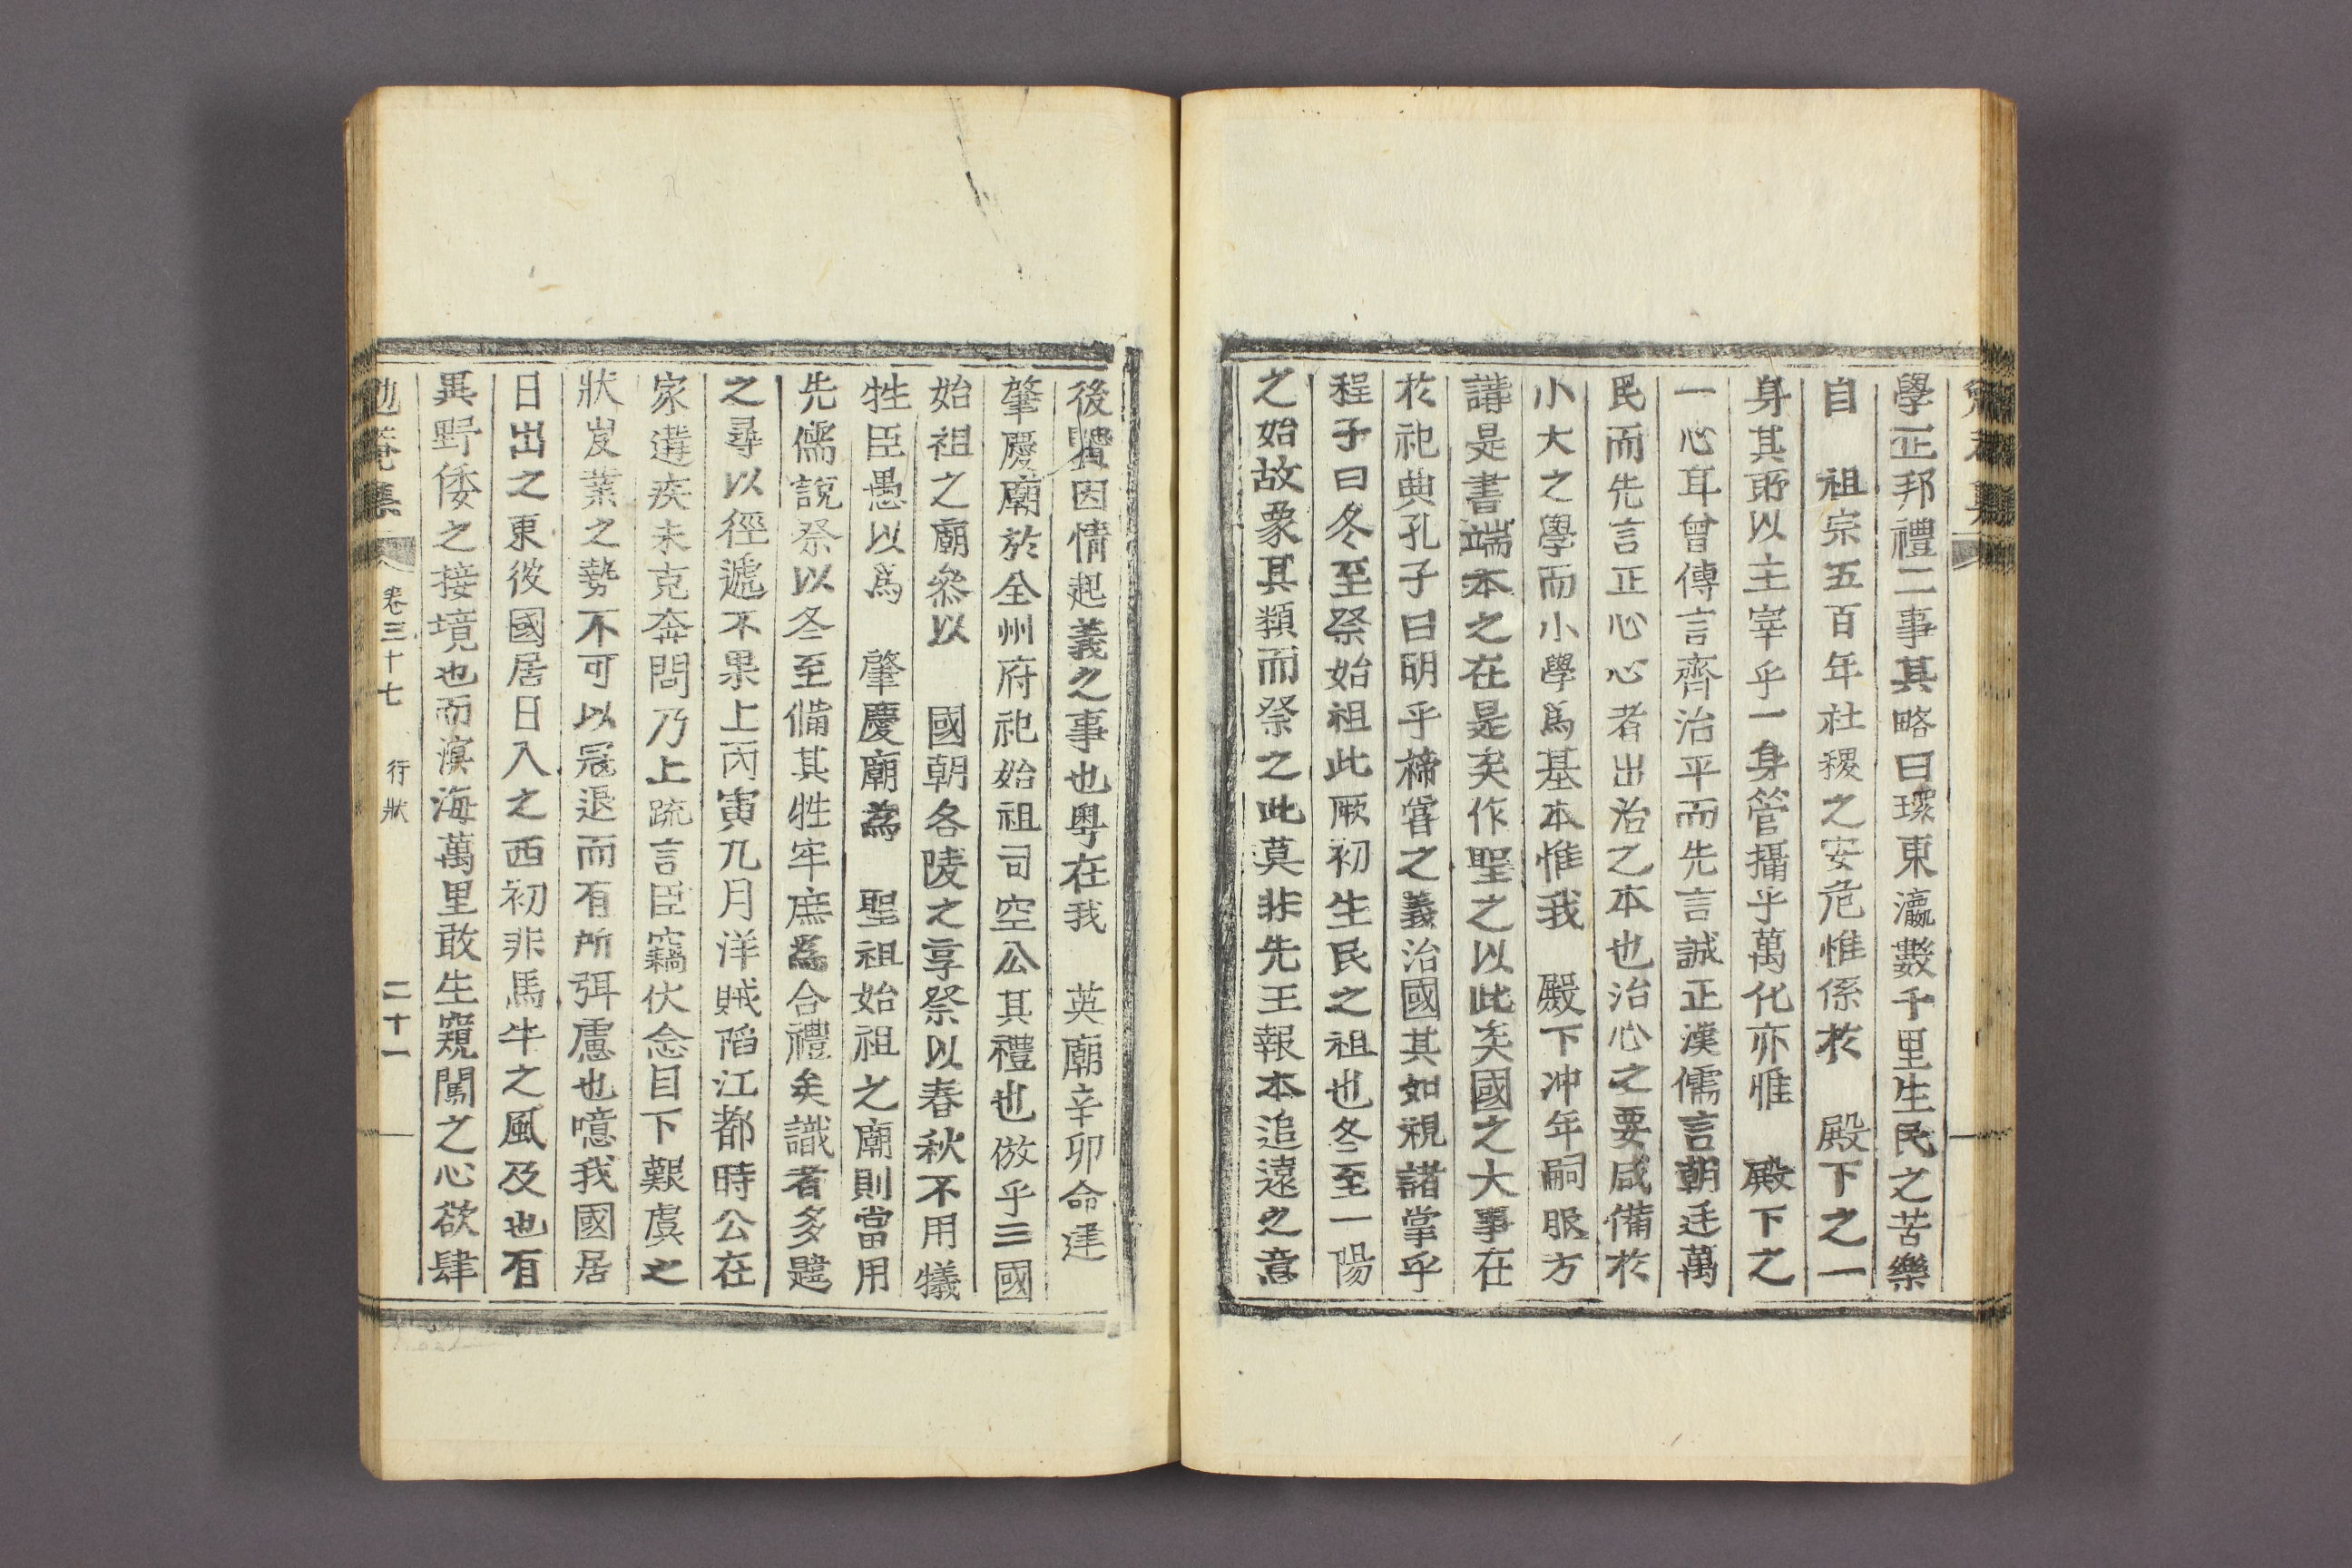 學正邦禮二事其略曰環東瀛數千里生民之苦樂
自 祖宗五百年社稷之安危惟係於 殿下之一
身其所以主宰乎一身管攝乎萬化亦惟 殿下之
一心耳曾傳言齊治平而先言誠正漢儒言朝廷萬
民而先言正心心者出治之本也治心之要咸備於
小大之學而小學爲基本惟我 殿下冲年嗣服方
講是書端本之在是矣作聖之以此矣國之大事在
於祀典孔子曰明乎禘嘗之義治國其如視諸掌乎
程子曰冬至祭始祖此厥初生民之祖也冬至一陽
之始故象其類而祭之此莫非先王報本追遠之意
後賢因情起義之事也粤在我 英廟辛卯命建
肇慶廟於全州府祀始祖司空公其禮也倣乎三國
始祖之廟叅以 國朝各陵之享祭以春秋不用犧
牲臣愚以爲 肇慶廟為 聖祖始祖之廟則當用
先儒說祭以冬至備其牲牢庶爲合禮矣識者多韙
之尋以徑遞不果上丙寅九月洋賊陷江都時公在
家遘疾未克奔問乃上疏言臣竊伏念目下艱虞之
狀岌業之勢不可以寇退而有所弭慮也噫我國居
日出之東彼國居日入之西初非馬牛之風及也有
異野倭之接境也而溟海萬里敢生窺闖之心欲肆
卷三十七 行狀 二十一